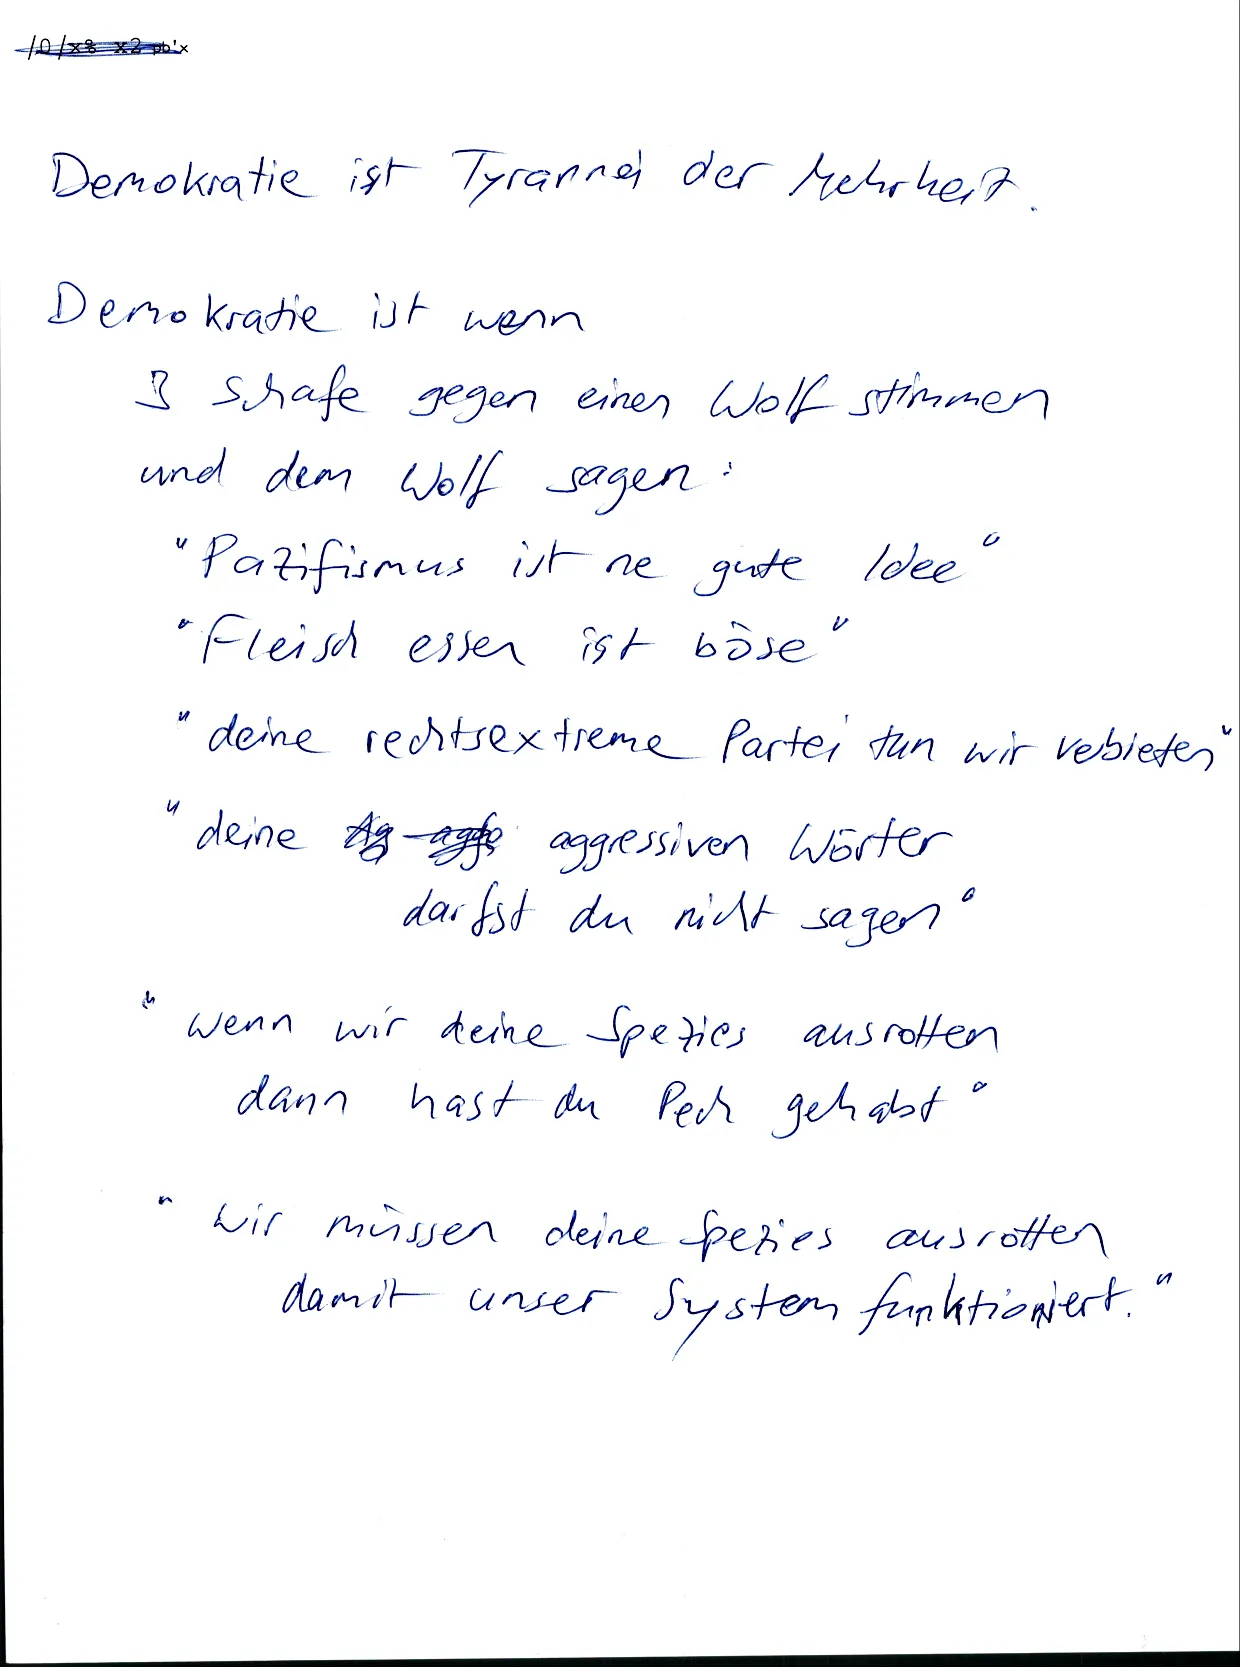 Demokratie ist Tyrannei der Mehrheit.
Demokratie ist wenn
3 Schafe gegen einen Wolf stimmen
und dem Wolf sagen:
"Pazifismus ist ne gute Idee"
"Fleisch essen ist böse"
"deine rechtsextreme Partei tun wir verbieten"
"deine aggressiven Wörter
darfst du nicht sagen"
"wenn wir deine Spezies ausrotten
dann hast du Pech gehabt"
"wir müssen deine Spezies ausrotten
damit unser System funktioniert."